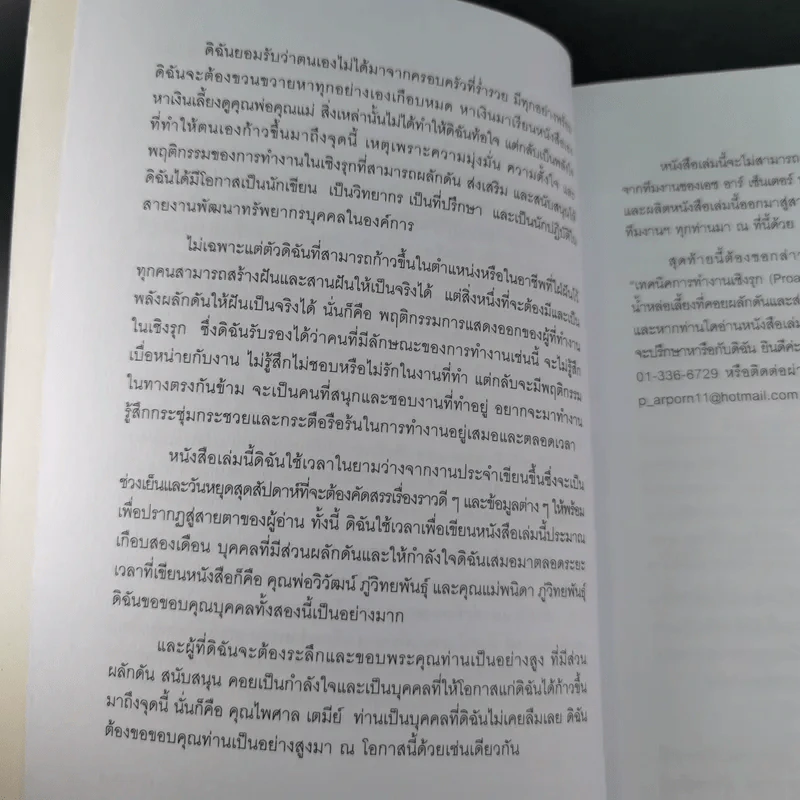 ดิฉันยอมรับว่าตนเองไม่ได้มาจากครอบครัวที่ร่ำรวย มีทุกอย่างพร้อม
ดิฉันจะต้องขวนขวายหาทุกอย่างเองเกือบหมด หาเงินมาเรียนหนังสือเอง
หาเงินเลี้ยงดูคุณพ่อคุณแม่ สิ่งเหล่านั้นไม่ได้ทำให้ดิฉันท้อใจ แต่กลับเป็นพลัง
ที่ทำให้ตนเองก้าวขึ้นมาถึงจุดนี้ เหตุเพราะความมุ่งมั่น ความตั้งใจ และ
พฤติกรรมของการทำงานในเชิงรุกที่สามารถผลักดัน ส่งเสริม และสนับสนุนให้
ดิฉันได้มีโอกาสเป็นนักเขียน เป็นวิทยากร เป็นที่ปรึกษา และเป็นนักปฏิบัติใน
สายงานพัฒนาทรัพยากรบุคคลในองค์การ
ไม่เฉพาะแต่ตัวดิฉันที่สามารถก้าวขึ้นในตำแหน่งหรือในอาชีพที่ใฝ่ฝันไว้
ทุกคนสามารถสร้างฝันและสานฝันให้เป็นจริงได้ แต่สิ่งหนึ่งที่จะต้องมีและเป็น
พลังผลักดันให้ฝันเป็นจริงได้ นั่นก็คือ พฤติกรรมการแสดงออกของผู้ที่ทำงาน
ในเชิงรุก ซึ่งดิฉันรับรองได้ว่าคนที่มีลักษณะของการทำงานเช่นนี้ จะไม่รู้สึก
เบื่อหน่ายกับงาน ไม่รู้สึกไม่ชอบหรือไม่รักในงานที่ทำ แต่กลับจะมีพฤติกรรม
ในทางตรงกันข้าม จะเป็นคนที่สนุกและชอบงานที่ทำอยู่ อยากจะมาทำงาน
รู้สึกกระชุ่มกระชวยและกระตือรือร้นในการทำงานอยู่เสมอและตลอดเวลา
หนังสือเล่มนี้ดิฉันใช้เวลาในยามว่างจากงานประจำเขียนขึ้นซึ่งจะเป็น
ช่วงเย็นและวันหยุดสุดสัปดาห์ที่จะต้องคัดสรรเรื่องราวดี ๆ และข้อมูลต่าง ๆ ให้พร้อม
เพื่อปรากฏสู่สายตาของผู้อ่าน ทั้งนี้ ดิฉันใช้เวลาเพื่อเขียนหนังสือเล่มนี้ประมาณ
เกือบสองเดือน บุคคลที่มีส่วนผลักดันและให้กำลังใจดิฉันเสมอมาตลอดระยะ
เวลาที่เขียนหนังสือก็คือ คุณพ่อวิวัฒน์ ภู่วิทยพันธุ์ และคุณแม่พนิดา ภู่วิทยพันธุ์
ดิฉันขอขอบคุณบุคคลทั้งสองนี้เป็นอย่างมาก
และผู้ที่ดิฉันจะต้องระลึกและขอบพระคุณท่านเป็นอย่างสูง ที่มีส่วน
ผลักดัน สนับสนุน คอยเป็นกำลังใจและเป็นบุคคลที่ให้โอกาสแก่ดิฉันได้ก้าวขึ้น
มาถึงจุดนี้ นั่นก็คือ คุณไพศาล เตมีย์ ท่านเป็นบุคคลที่ดิฉันไม่เคยลืมเลย ดิฉัน
ต้องขอขอบคุณท่านเป็นอย่างสูงมา ณ โอกาสนี้ด้วยเช่นเดียวกัน
หนังสือเล่มนี้จะไม่สามารถ
จากทีมงานของเอช อาร์ เซ็นเตอร์
และผลิตหนังสือเล่มนี้ออกมาสู่
ทีมงานฯ ทุกท่านมา ณ ที่นี้ด้วย
สุดท้ายนี้ต้องขอกล่าว
"เทคนิคการทำงานเชิงรุก (Proa
น้ำหล่อเลี้ยงที่คอยผลักดันและ
และหากท่านใดอ่านหนังสือเล่ม
จะปรึกษาหารือกับดิฉัน ยินดีค่ะ
01-336-6729 หรือติดต่อผ่า
p_arporn11@hotmail.com